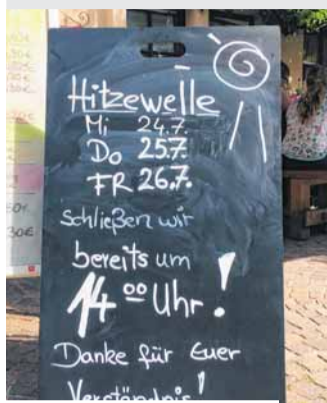 Hitzewelle
Mi 24.7.
Do 25.7.
FR 26.7.
schließen wir
bereits um
14 00 Uhr!
Danke für Euer
Verständnis!